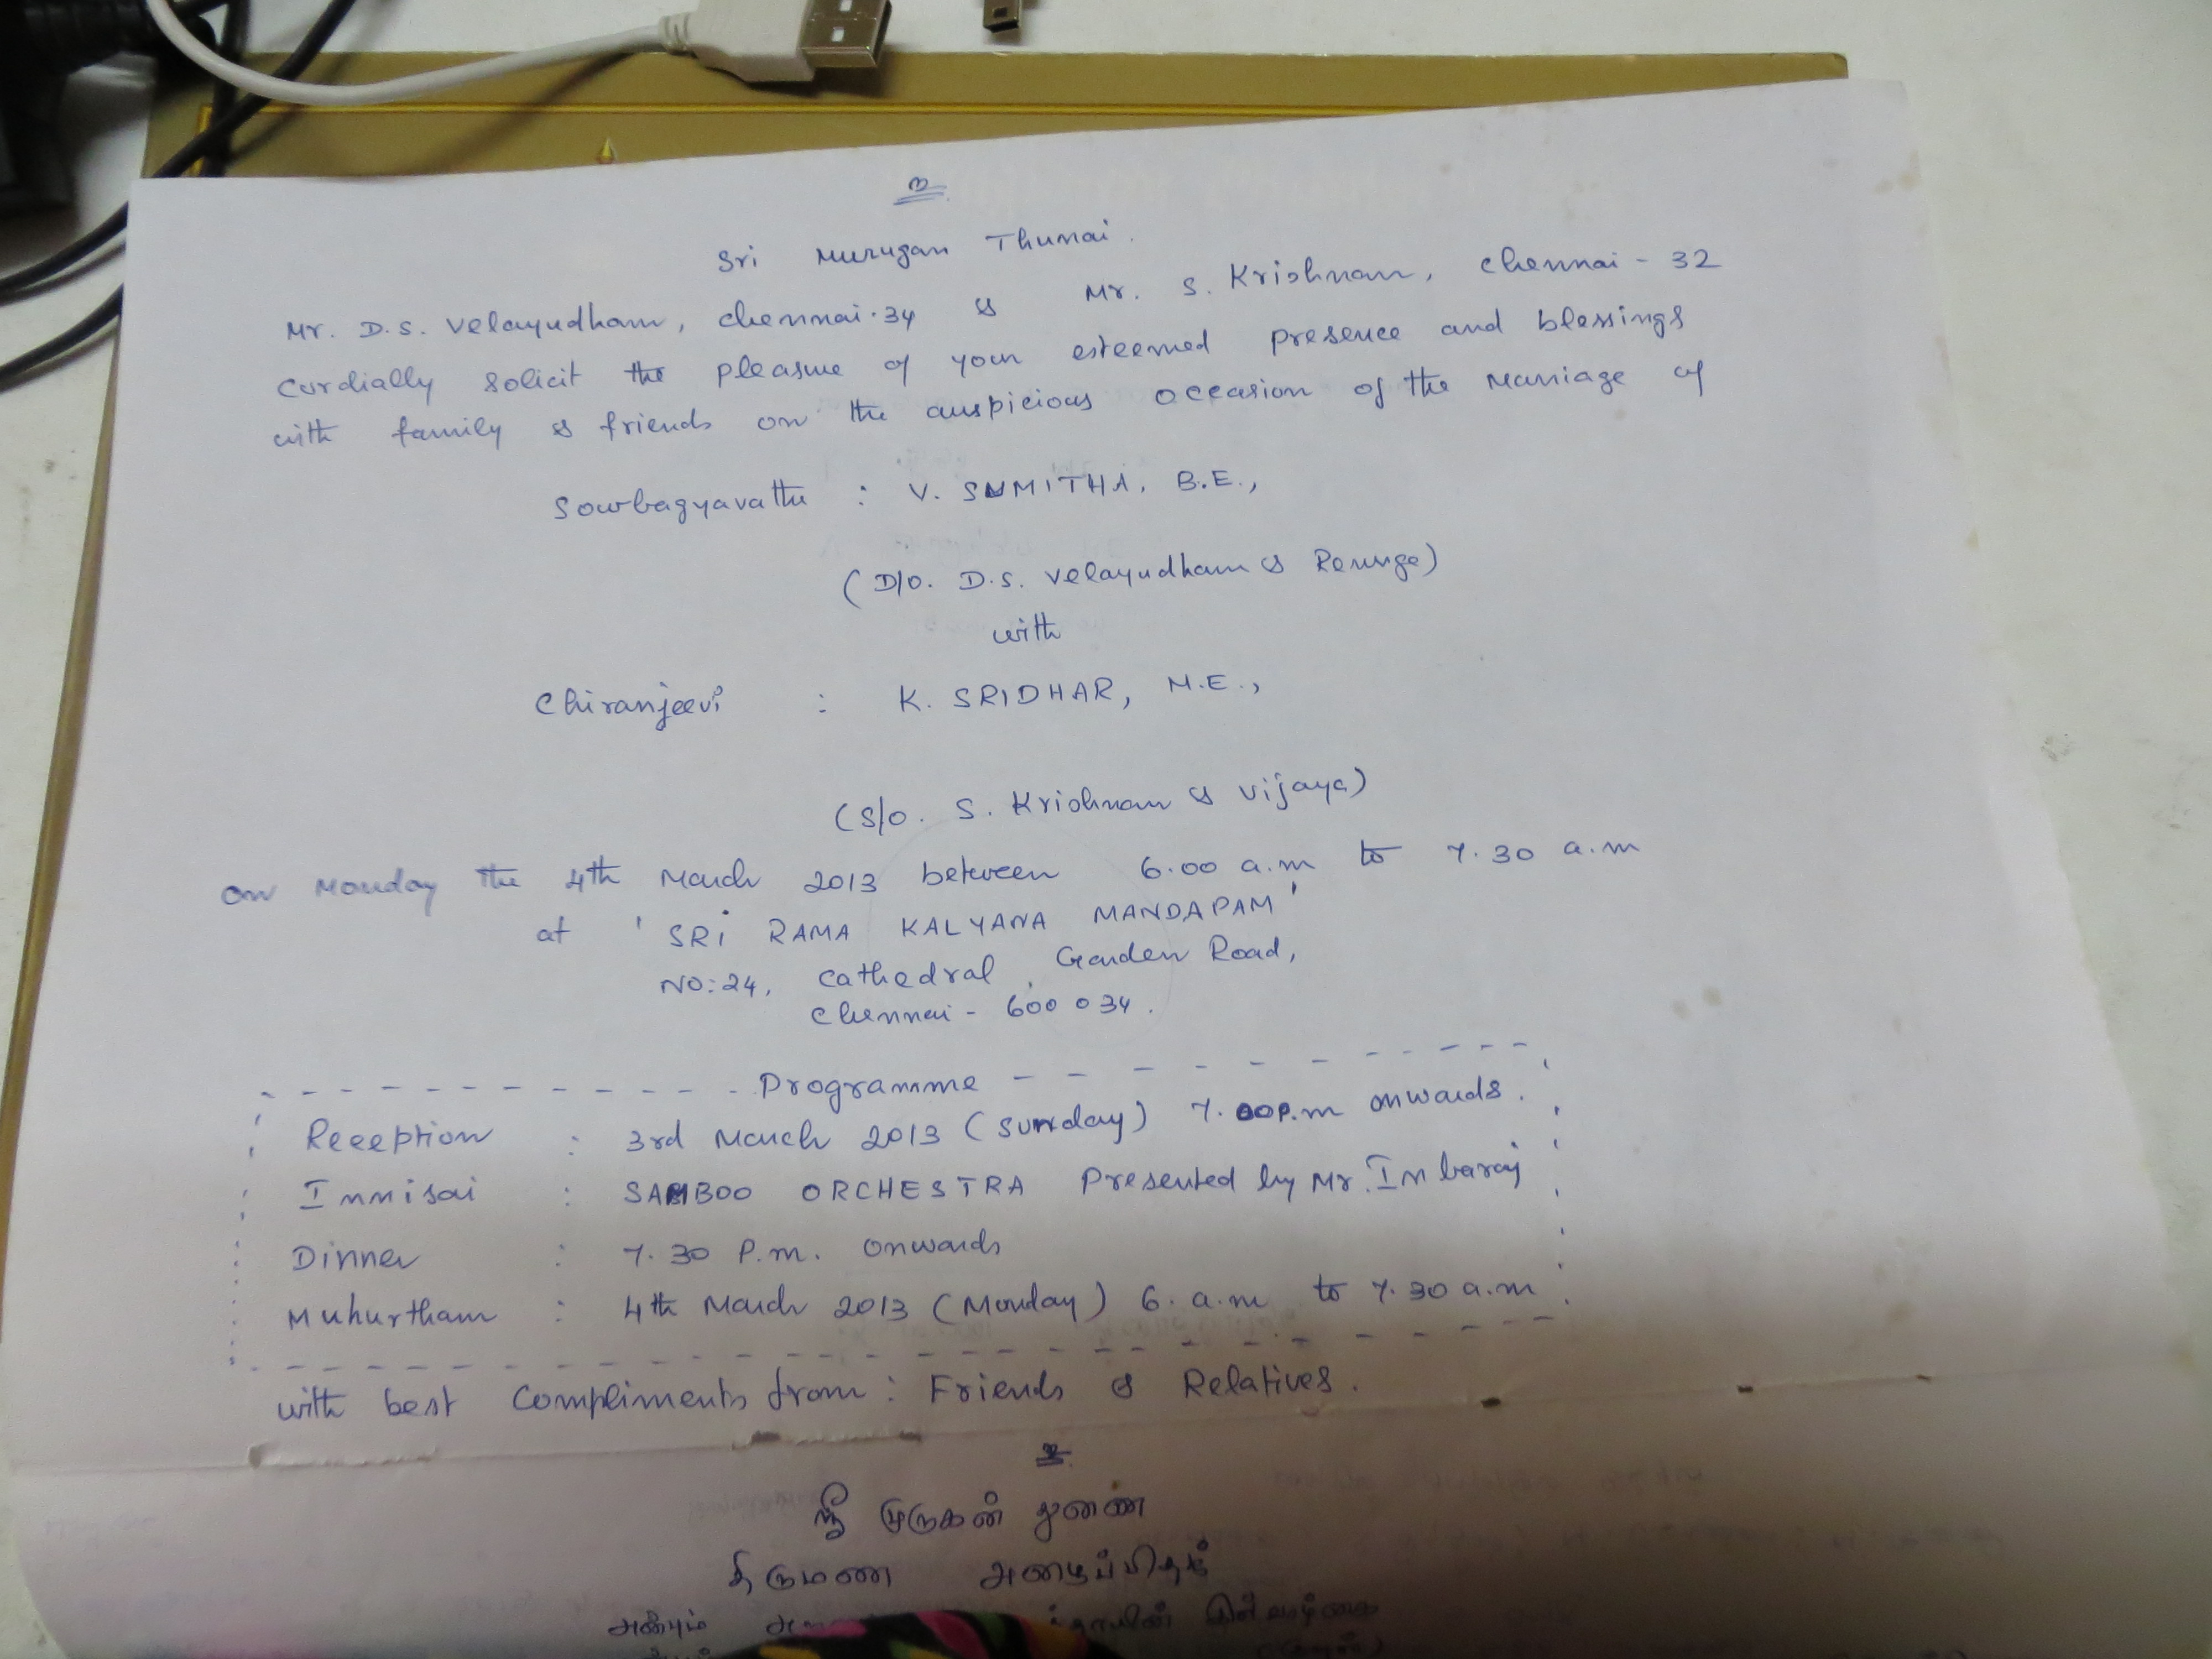 உ
Sri Murugan Thunai.
Mr. D.S. Velayudham, Chennai.34 & Mr. S. Krishnan, Chennai - 32
Cordially solicit the pleasure of your esteemed presence and blessings
with family & friends on the auspicious occasion of the Marriage of
Sowbagyavathi : V. SUMITHA, B.E.,
(D/O. D.S. Velayudham & Renuga)
with
Chiranjeevi : K. SRIDHAR, M.E.,
(S/O. S. Krishnan & Vijaya)
on Monday the 4th March 2013 between 6.00 a.m to 7.30 a.m
at 'SRI RAMA KALYANA MANDAPAM'
NO:24, Cathedral Garden Road,
Chennai - 600 034.
Programme
Reception : 3rd March 2013 (Sunday) 7.00P.m onwards.
Innisai : SAMBOO ORCHESTRA Presented by Mr. Inbaraj
Dinner : 7.30 P.m. Onwards
Muhurtham : 4th March 2013 (Monday) 6. a.m to 7.30 a.m
with best Compliments from : Friends & Relatives.
உ
ஸ்ரீ முருகன் துணை
திருமண அழைப்பிதழ்
அன்பும்